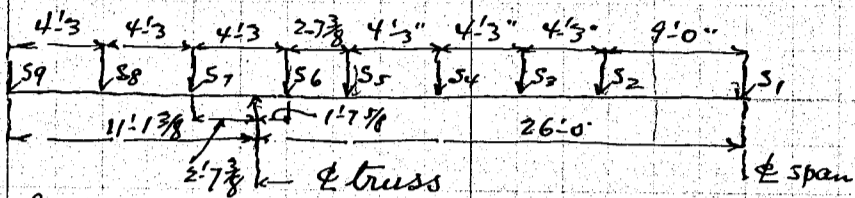 4'-3 4'-3 4'-3 2-7 3/8 4'-3" 4'-3" 4'-3" 9'-0"
S9 S8 S7 S6 S5 S4 S3 S2 S1
11'-1 3/8 1'-7 5/8 26'-0"
2'-7 3/8 ℄ truss ℄ span